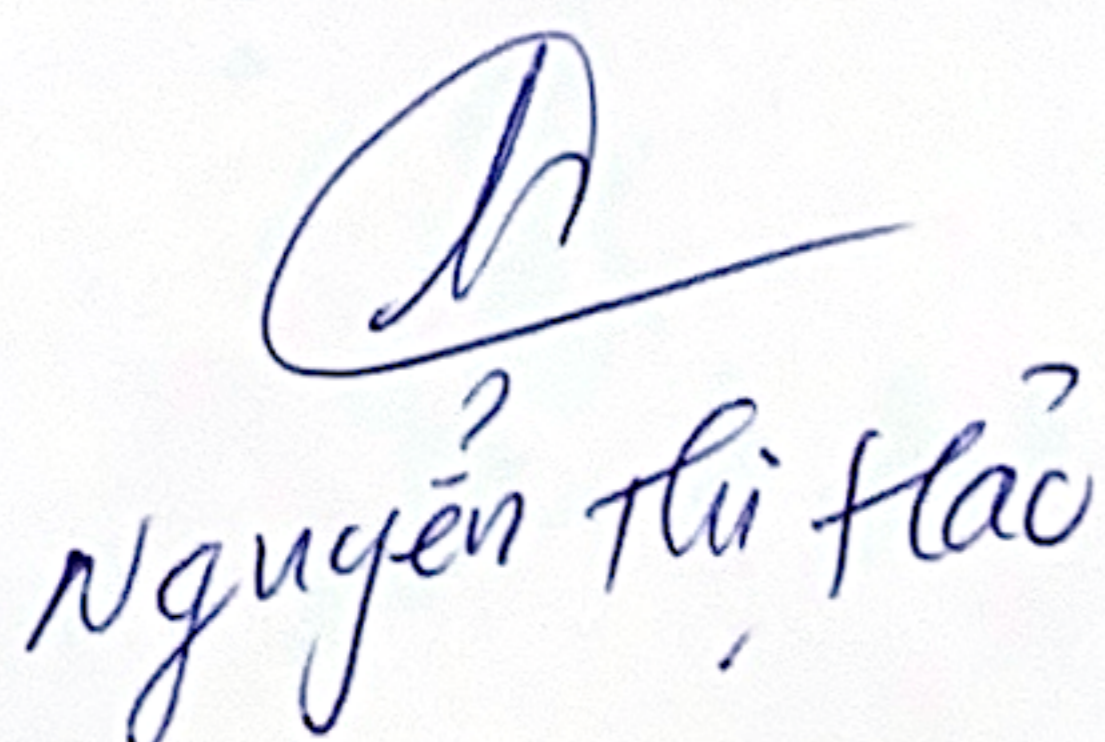 Nguyển Thị Hảo